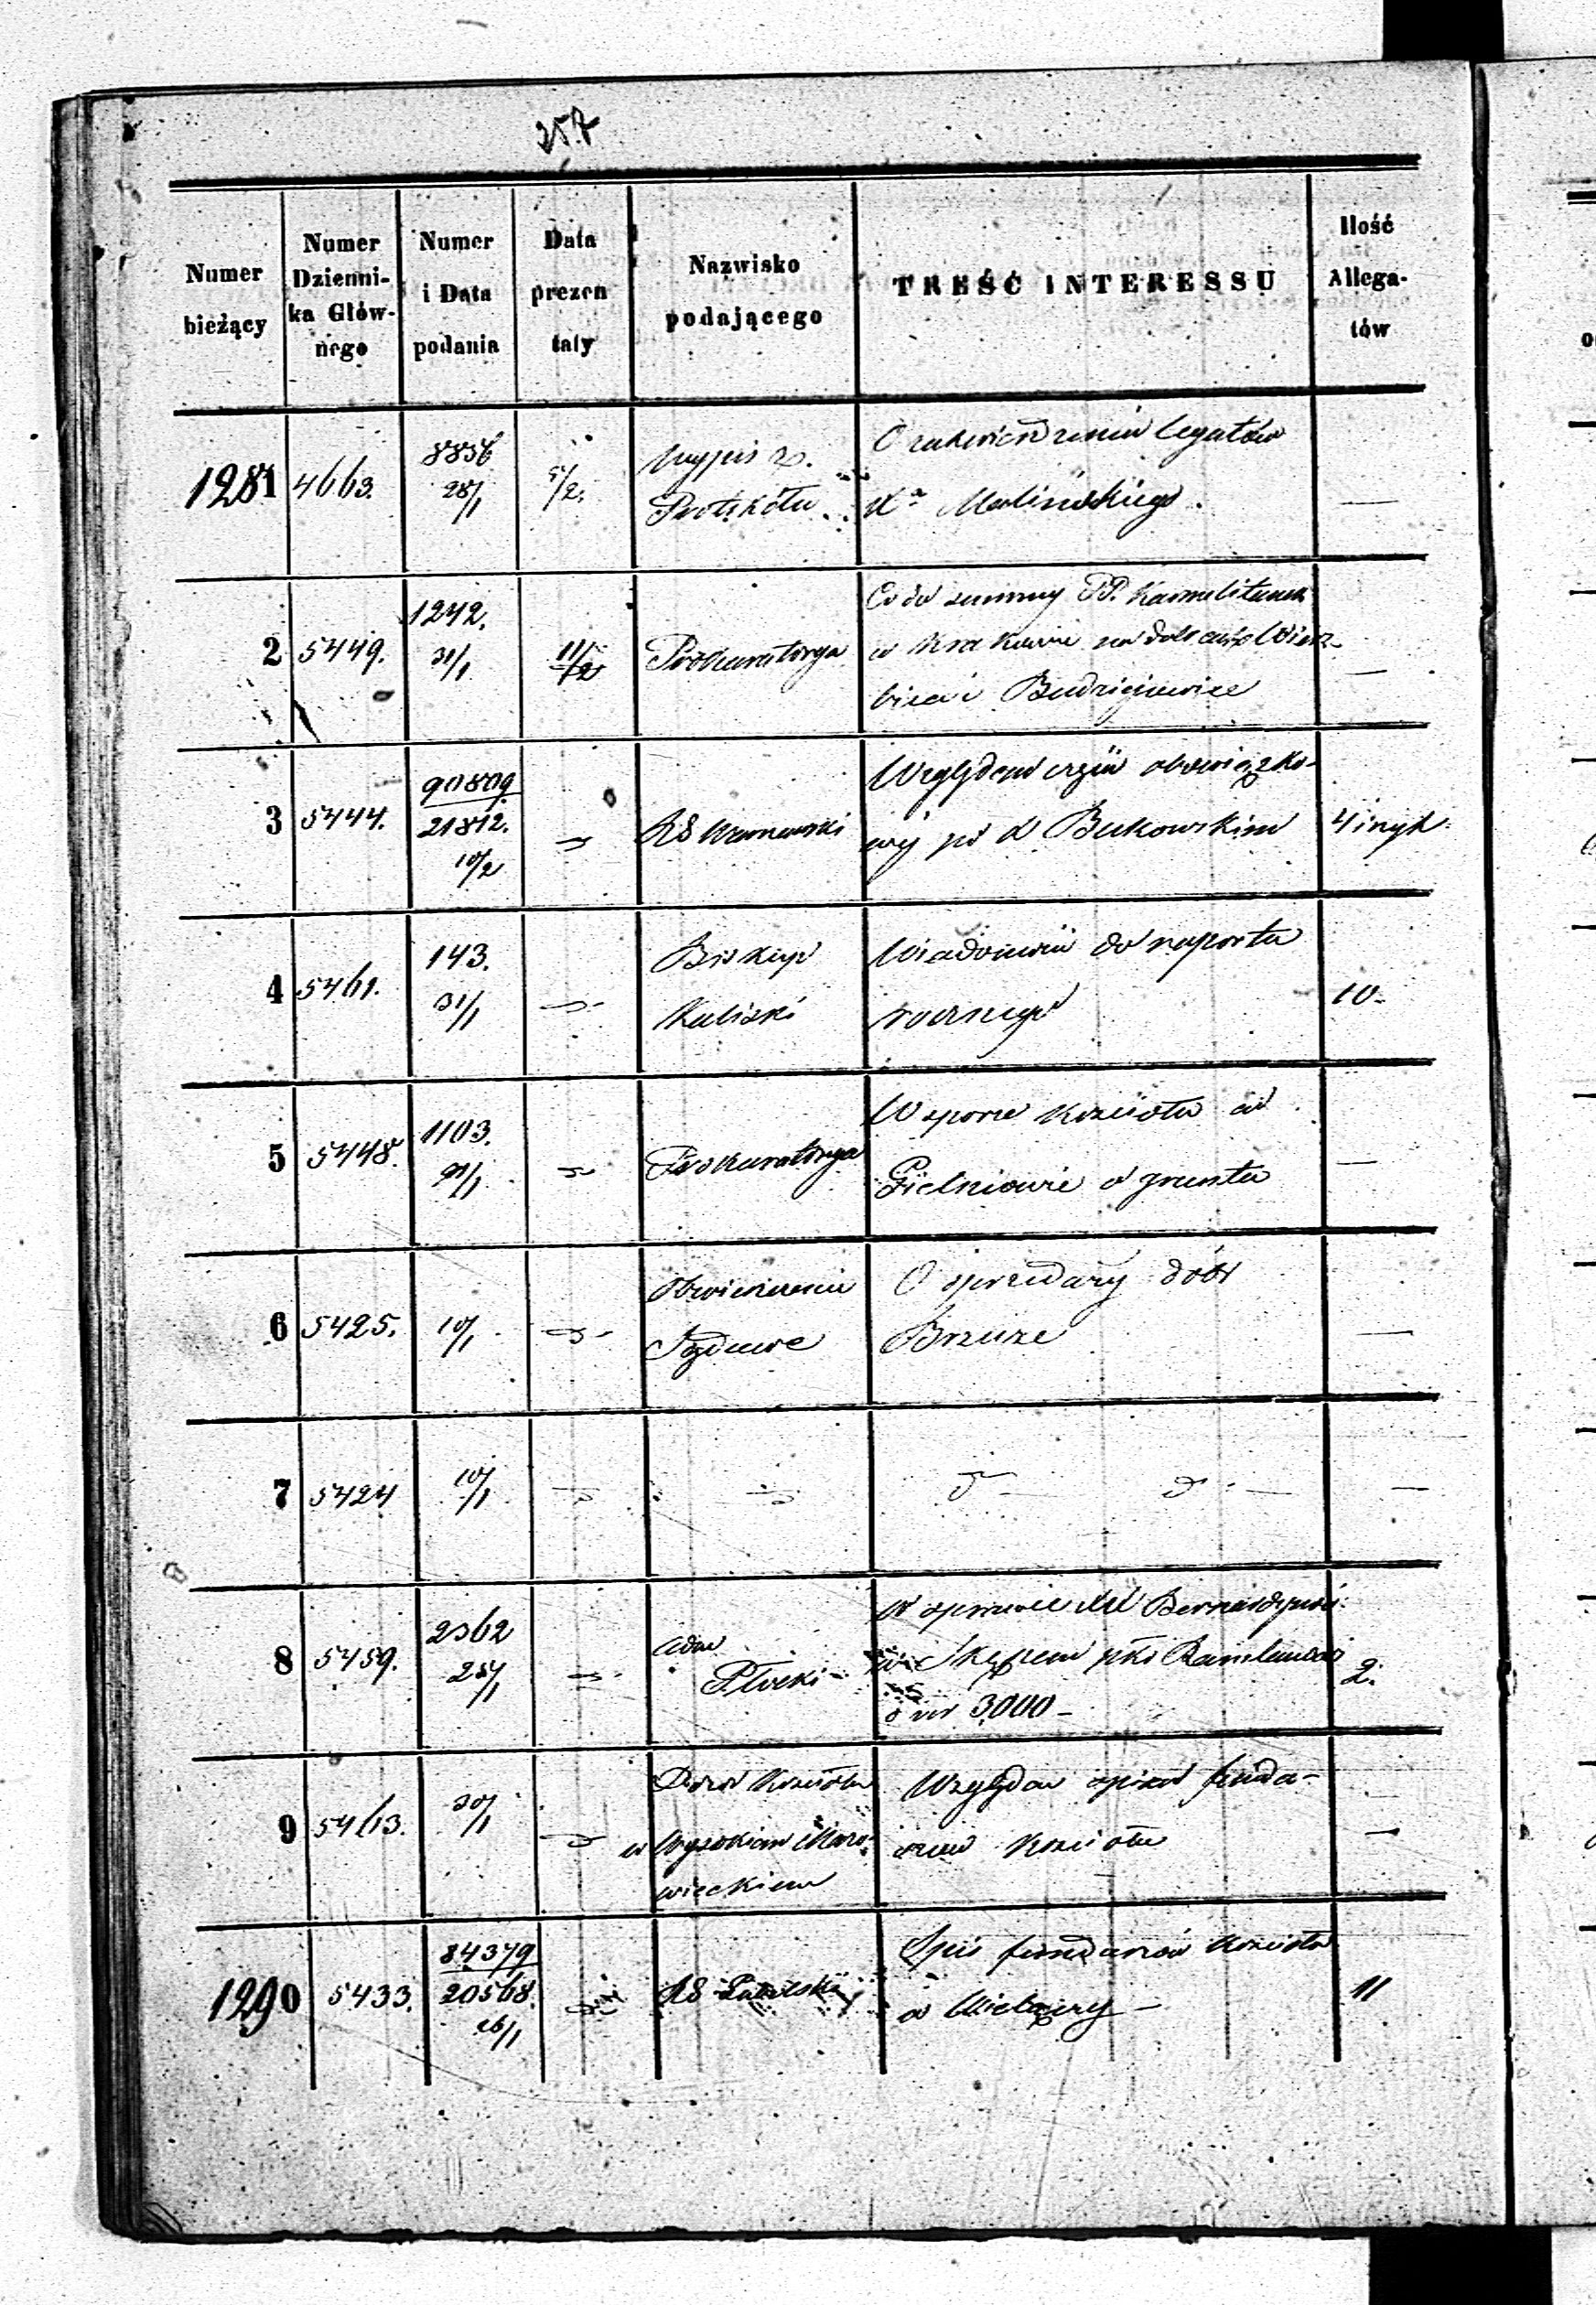 257
Numer bieżący
Numer Dzienni-ka Głów-nego
Numer i Data podania
Data prezen taty
Nazwisko podającego
TREŚĆ INTERESSU
Ilość Allega-tów
1281 4663. 8856 28/1 5/2. Wypis z Protokółu O zatwierdzeniu legatów Xa Malińskiego. —
2 5449. 1242. 31/1 11/2 Prokuratorya Co do summy PP. Karmelitanek w Krakowie na dobrach Wierz-bica i Budziejewice —
3 5444. 90809 21812. 10/2 RG Względem obowiązko-wej po X Bukowskim 4 i
4 5461. 143. 31/1 Biskup Kaliski Wiadomości do raportu rocznego 10.
5 5448. 1103. 31/1 Prokuratorya W sporze Kościoła w Gielniowie o grunta —
6 5425. 10/1 Obwieszczenie Sądowe O sprzedaży dóbr Brzuze —
7 5424 10/1 — d — d — —
8 5459. 2362 25/1 Adm Płocki W sprawie XX Bernardynów w Skępem pko o 3000 — 2.
9 5463. 30/1 Dozór Kościoła w Wysokiem Mazo-wieckiem Względem spisu fundu-szów Kościoła —
1290 5433. 84379 20568. 26/1 RG Spis funduszów Kościoła w — 11